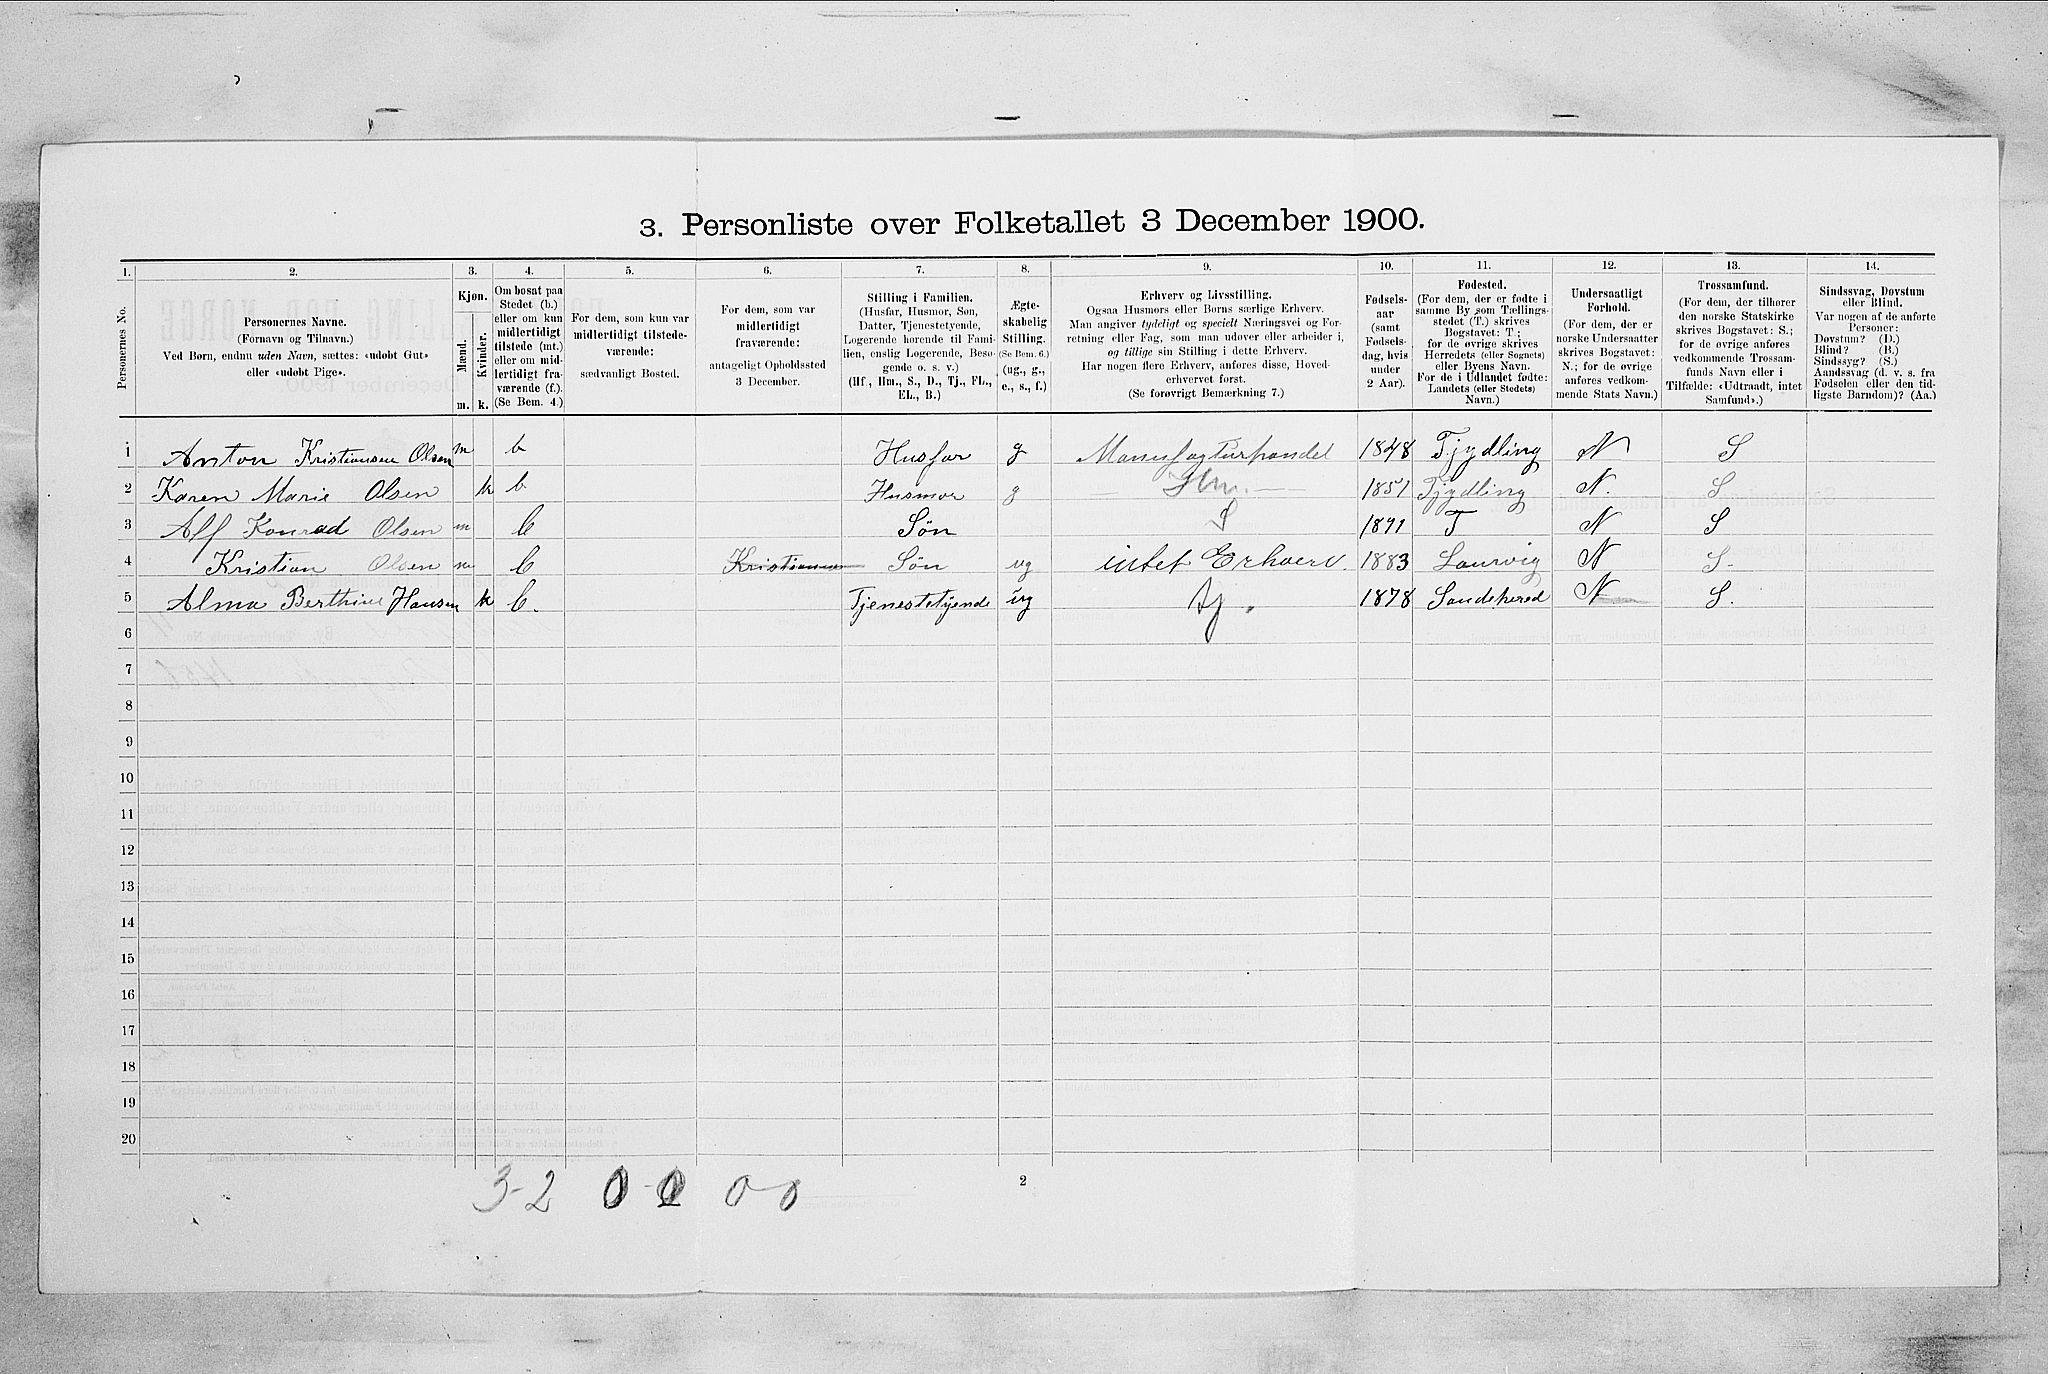 3. Personliste over Folketallet 3 December 1900.
1. 2. 3. 4. 5. 6. 7. 8. 9. 10. 11. 12. 13. 14.
Personernes No.
Personernes Navne.
(Fornavn og Tilnavn.)
Ved Børn, endnu uden Navn, sættes: «udøbt Gut»
eller «udøbt Pige».
Kjøn.
Mænd. Kvinder.
m. k.
Om bosat paa
Stedet (b.)
eller om kun
midlertidigt
tilstede (mt.)
eller om mid-
lertidigt fra-
værende (f.).
(Se Bem. 4.)
For dem, som kun var
midlertidigt tilstede-
værende:
sædvanligt Bosted.
For dem, som var
midlertidigt
fraværende:
antageligt Opholdssted
3 December.
Stilling i Familien.
(Husfar, Husmor, Søn,
Datter, Tjenestetyende,
Logerende hørende til Fami-
lien, enslig Logerende, Besø-
gende o. s. v.)
(Hf., Hm., S., D., Tj., FL.,
EL., B.)
Ægte-
skabelig
Stilling.
(Se Bem. 6.)
(ug., g.,
e., s., f.)
Erhverv og Livsstilling.
Ogsaa Husmors eller Børns særlige Erhverv.
Man angiver tydeligt og specielt Næringsvei og For-
retning eller Fag, som man udøver eller arbeider i,
og tillige sin Stilling i dette Erhverv.
Har nogen flere Erhverv, anføres disse, Hoved-
erhvervet først.
(Se forøvrigt Bemærkning 7.)
Fødsels-
aar
(samt
Fødsels-
dag, hvis
under
2 Aar).
Fødested.
(For dem, der er fødte i
samme By som Tællings-
stedet (T.) skrives
Bogstavet: T.;
for de øvrige skrives
Herredets (eller Sognets)
eller Byens Navn.
For de i Udlandet fødte:
Landets (eller Stedets)
Navn.)
Undersaatligt
Forhold.
(For dem, der er
norske Undersaatter
skrives Bogstavet:
N.; for de øvrige
anføres vedkom-
mende Stats Navn.)
Trossamfund.
(For dem, der tilhører
den norske Statskirke
skrives Bogstavet: S.;
for de øvrige anføres
vedkommende Trossam-
funds Navn eller i
Tilfælde: «Udtraadt, intet
Samfund».)
Sindssvag, Døvstum
eller Blind.
Var nogen af de anførte
Personer:
Døvstum? (D.)
Blind? (B.)
Sindssyg? (S.)
Aandssvag (d. v. s. fra
Fødselen eller den tid-
ligste Barndom)? (Aa.)
1 Anton Kristiansen Olsen m b Husfar g Manufagturhandel 1848 Tjydling N S
2 Karen Marie Olsen k b Husmor g Hm. 1851 Tjydling N. S
3 Alf Konrad Olsen m b Søn S 1891 T N S
4 Kristian Olsen m b Kristiania Søn ug intet Erhverv. 1883 Laurvig N S.
5 Alma Berthine Hansen k b. Tjenestetyende ug tj. 1878 Sandeherred N S.
6
7
8
9
10
11
12
13
14
15
16
17
18
19
20
3-2 0-0 0-0
2